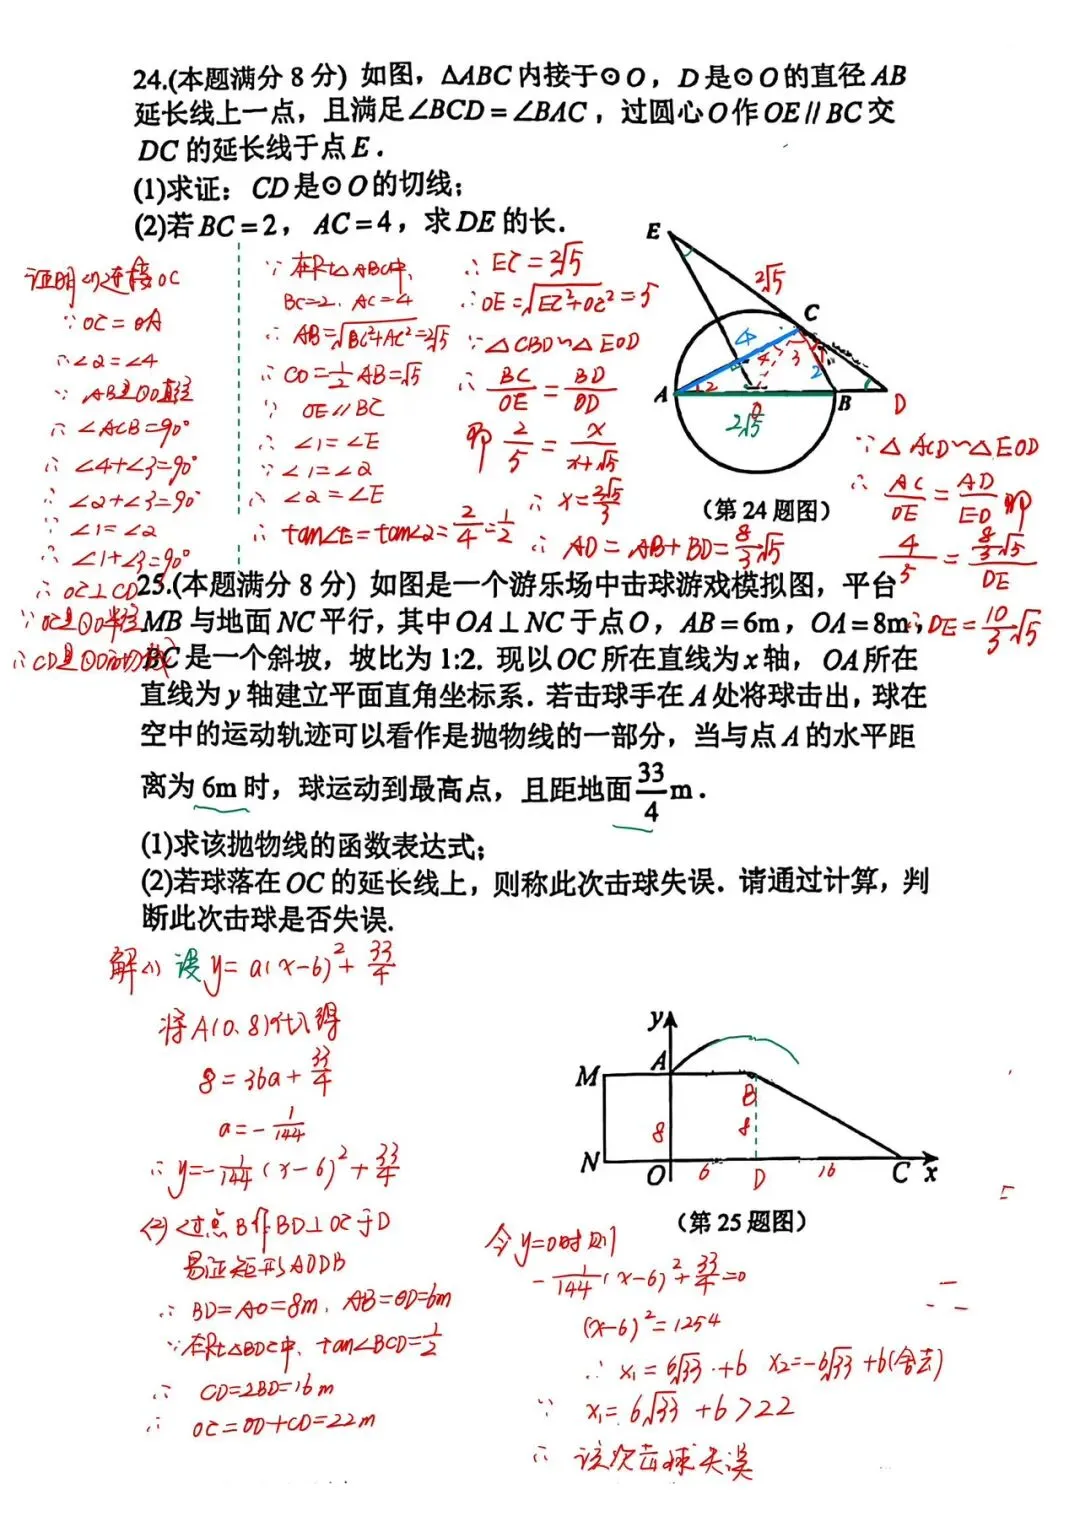 24.(本题满分 8 分) 如图，ΔABC 内接于⊙O，D 是⊙O 的直径 AB
延长线上一点，且满足∠BCD=∠BAC，过圆心O作OE∥BC交
DC 的延长线于点E.
(1)求证：CD是⊙O的切线；
(2)若BC=2，AC=4，求DE的长.
证明 (1)连接OC
∵OC=OA
∴∠2=∠4
∵AB是⊙O直径
∴∠ACB=90°
∴∠4+∠3=90°
∴∠2+∠3=90°
∵∠1=∠2
∴∠1+∠3=90°
∴OC⊥CD
∵OC是⊙O半径
∴CD是⊙O的切线
∵在Rt△ABC中,
BC=2. AC=4
∴AB=√BC²+AC²=2√5
∴CO=1/2AB=√5
∵OE∥BC
∴∠1=∠E
∵∠1=∠2
∴∠2=∠E
∴tan∠E=tan∠2=2/4=1/2
∴EC=2√5
∴OE=√EC²+OC²=5
∵△CBD∽△EOD
∴BC/OE=BD/OD
即 2/5=x/x+√5
∴x=2√5/3
∴AD=AB+BD=8/3√5
E
2√5
C
4
4
3
1
2
A
2
1
O
B
D
2√5
(第24题图)
∵△ACD∽△EOD
∴AC/OE=AD/ED即
4/5=8/3√5/DE
∴DE=10/3√5
25.(本题满分 8 分) 如图是一个游乐场中击球游戏模拟图，平台
MB 与地面NC平行，其中OA⊥NC于点O，AB=6m，OA=8m，
BC是一个斜坡，坡比为 1:2. 现以OC所在直线为x轴，OA所在
直线为y轴建立平面直角坐标系. 若击球手在A处将球击出，球在
空中的运动轨迹可以看作是抛物线的一部分，当与点A的水平距
离为 6m时，球运动到最高点，且距地面33/4m.
(1)求该抛物线的函数表达式；
(2)若球落在OC的延长线上，则称此次击球失误. 请通过计算，判
断此次击球是否失误.
解(1) 设y=a(x-6)²+33/4
将A(0,8)代入得
8=36a+33/4
a=-1/144
∴y=-1/144(x-6)²+33/4
(2)过点B作BD⊥OC于D
易证矩形AODB
∴BD=AO=8m, AB=OD=6m
∵在Rt△BDC中, tan∠BCD=1/2
∴CD=2BD=16m
∴OC=OD+CD=22m
y
A
M
B
8
8
N
O
6
D
16
C
x
(第25题图)
令y=0时则
-1/144(x-6)²+33/4=0
(x-6)²=1254
∴x₁=6√33+6 x₂=-6√33+6(舍去)
∵x₁=6√33+6>22
∴该次击球失误